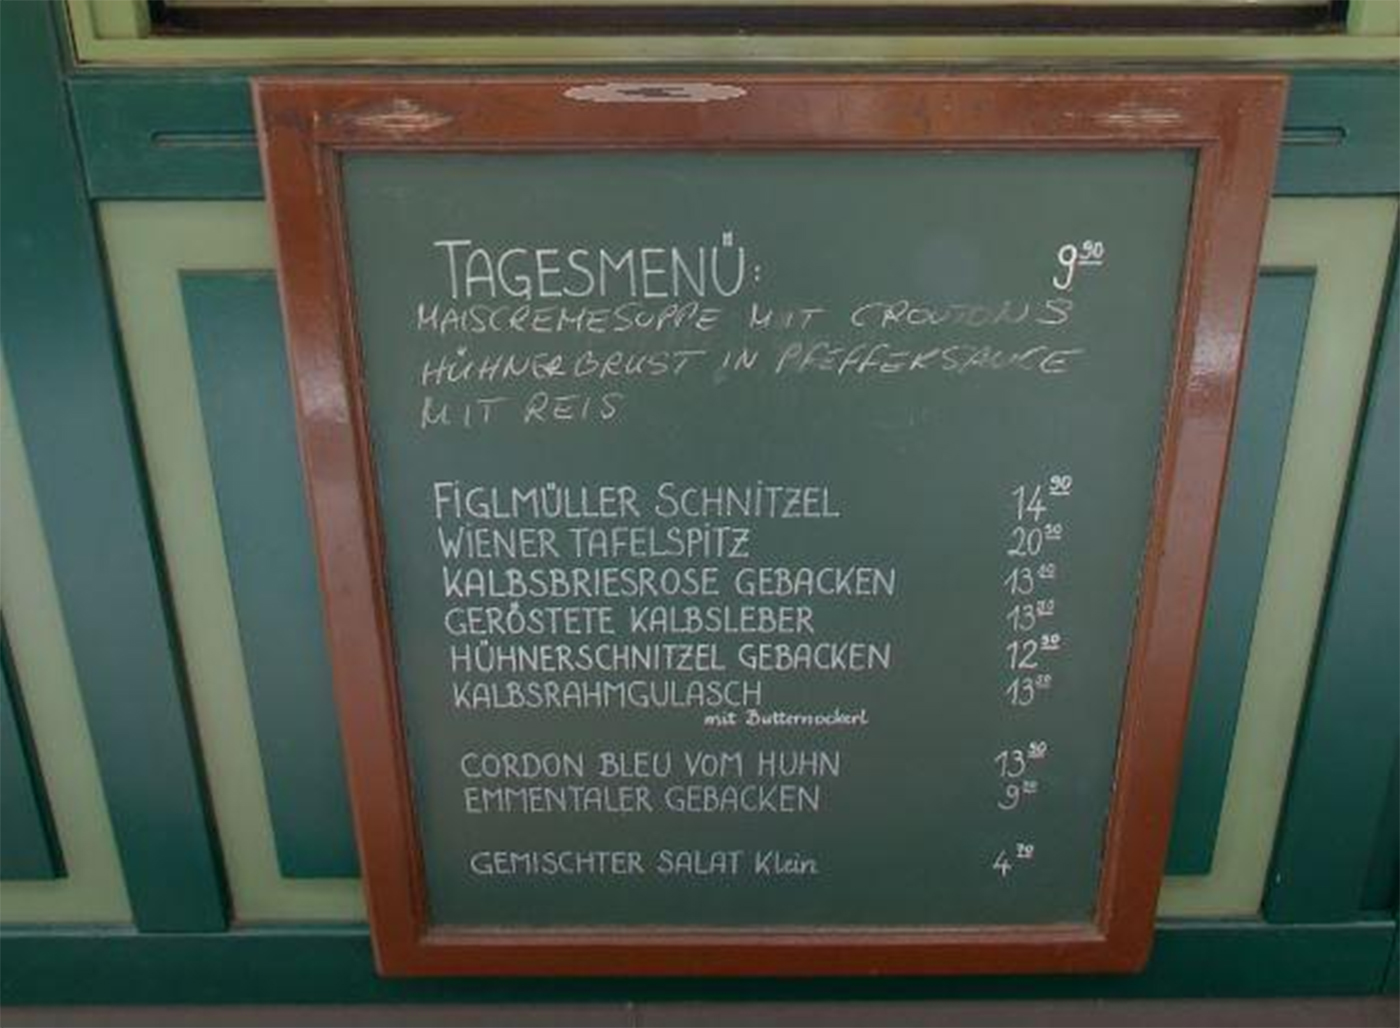 TAGESMENÜ: 9 90
MAISCREMESUPPE MIT CROUTONS
HÜHNERBRUST IN PFEFFERSAUCE
MIT REIS
FIGLMÜLLER SCHNITZEL 14 90
WIENER TAFELSPITZ 20
KALBSBRIESROSE GEBACKEN 13
GERÖSTETE KALBSLEBER 13
HÜHNERSCHNITZEL GEBACKEN 12
KALBSRAHMGULASCH 13
mit Butternockerl
CORDON BLEU VOM HUHN 13
EMMENTALER GEBACKEN 9
GEMISCHTER SALAT Klein 4